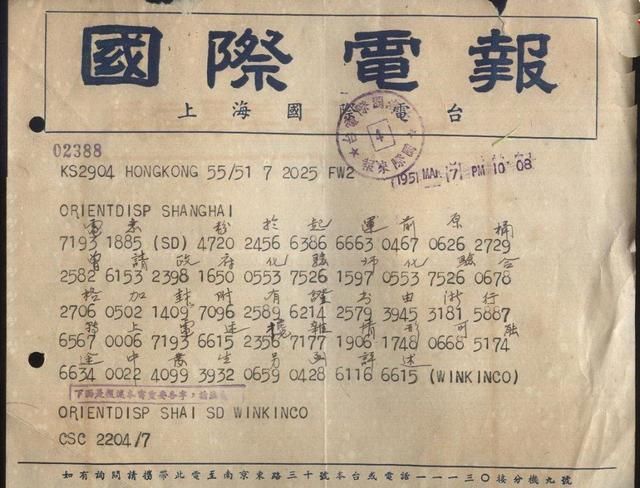 國際電報
上海國際電台
02388
KS2904 HONGKONG 55/51 7 2025 FW2
1951 MAR (7) PM 10 08
ORIENTDISP SHANGHAI
電 於起運前原桶
7193 1885 (SD) 4720 2456 6386 6663 0467 0626 2729
曾請政府化驗師化驗合
2582 6153 2398 1650 0553 7526 1597 0553 7526 0678
格加封時有證書由浙行
2706 0502 1409 7096 2589 6214 2579 3945 3181 5887
務上電述攙雜情形可融
6567 0006 7193 6615 2356 7177 1906 1748 0668 5174
途中發生另函詳述
6634 0022 4099 3932 0659 0428 6116 6615 (WINKINCO)
ORIENTDISP SHAI SD WINKINCO
CSC 2204/7
如有詢問請攜帶此電至南京東路三十號本台或電話一一一三〇接分機九號